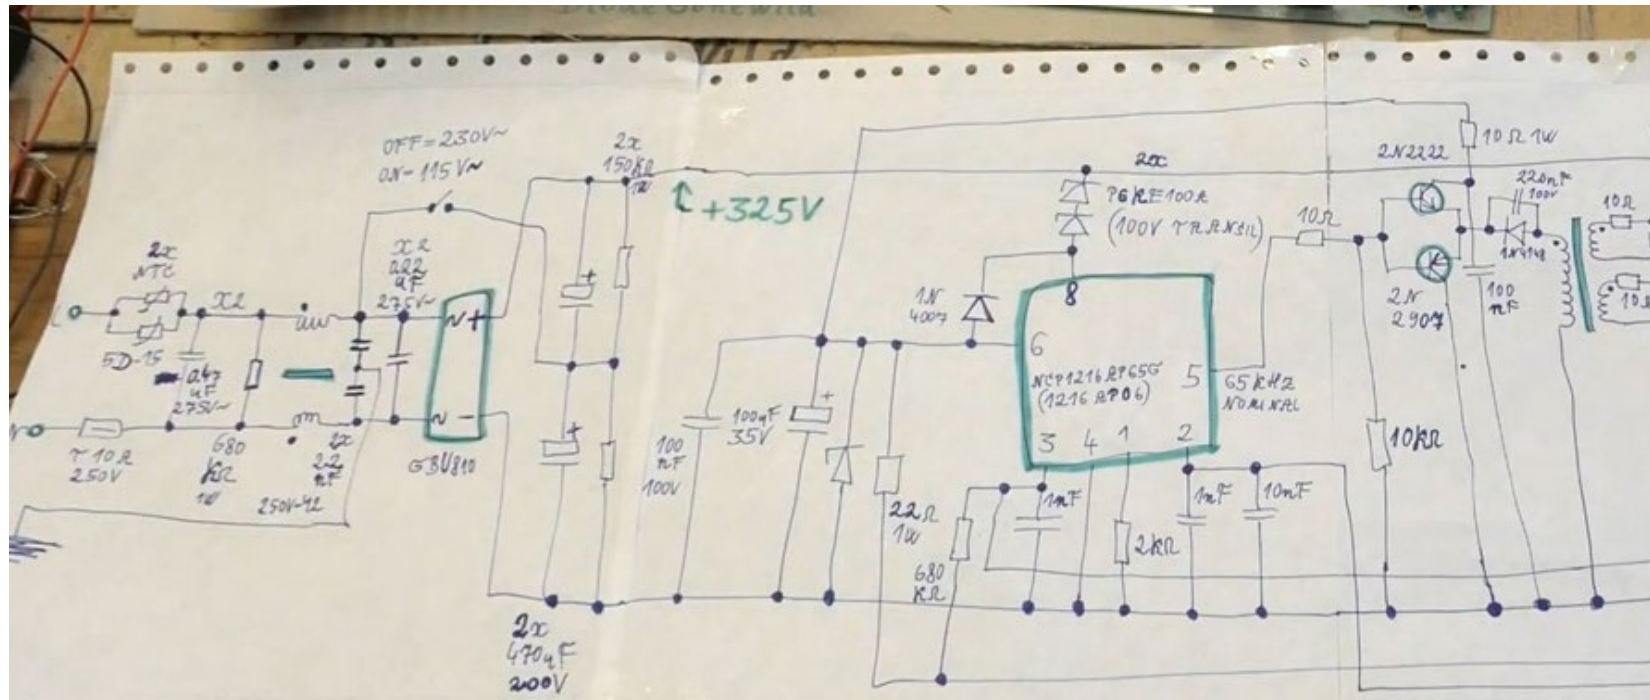 OFF=230V~
ON-115V~
2x
150kΩ
1W
+325V
2x
NTC
5D-15
X2
X2
0,22
uF
275V~
0,47
uF
275V~
L
N
T 10A
250V
680
kΩ
1W
2x
2,2
nF
250V~Y2
~+
~-
GBU810
2x
470uF
200V
100
nF
100V
100uF
35V
+
+
+
22Ω
1W
1N
4007
2x
P6KE100A
(100V TRANSIL)
8
6
NCP1216AP65G
(1216AP06)
5
3
4
1
2
65kHz
NOMINAL
680
kΩ
1nF
2kΩ
1nF
10nF
10Ω
10kΩ
2N2222
10Ω 1W
220nF
100V
1N4148
2N
2907
100
nF
10Ω
10Ω